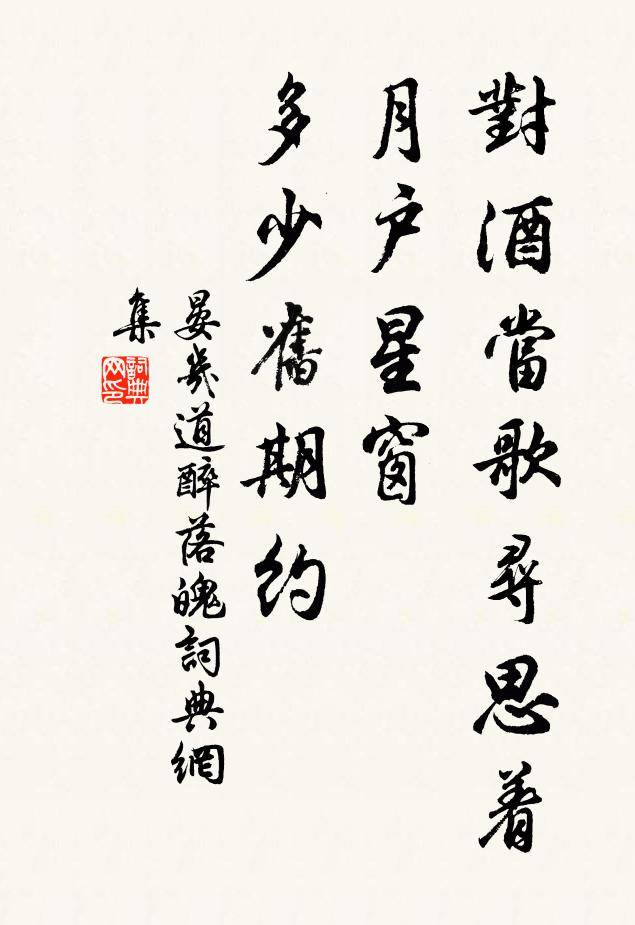 對酒當歌尋思着
月户星窗
多少舊期約
晏幾道醉落魄詞典網
集
詞典网印